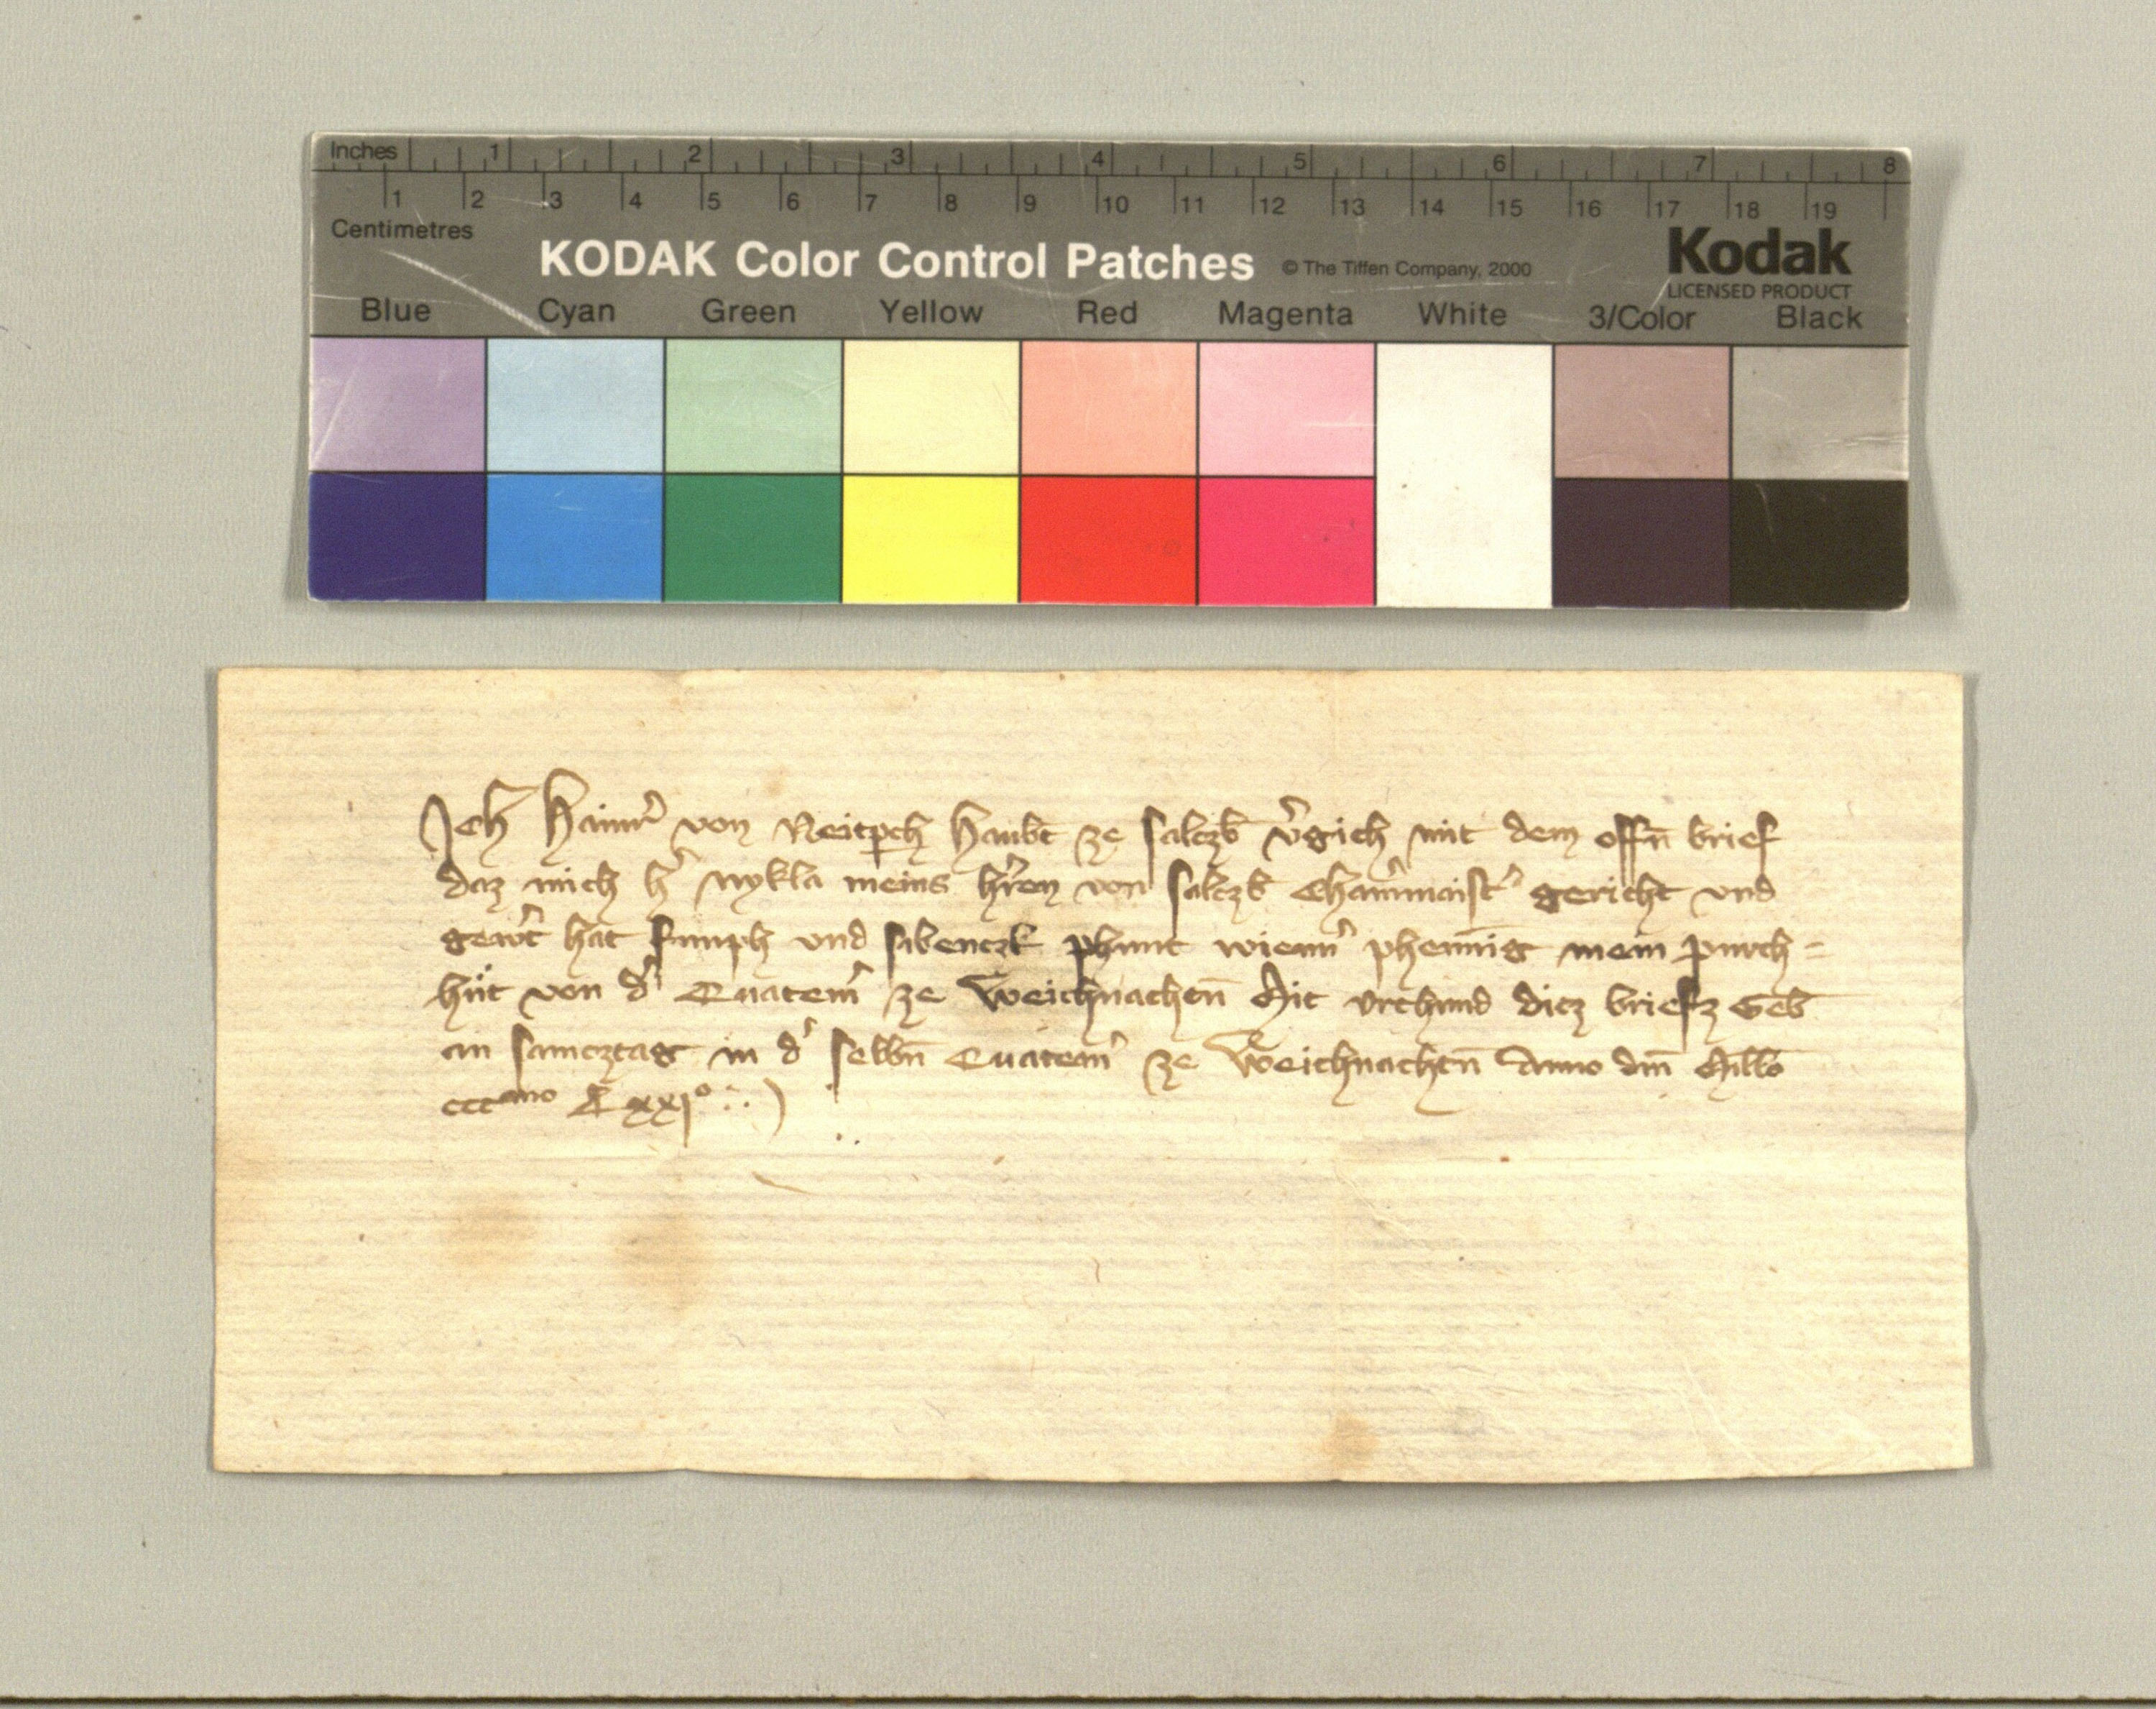 Inches 1 2 3 4 5 6 7 8
1 2 3 4 5 6 7 8 9 10 11 12 13 14 15 16 17 18 19
Centimetres
KODAK Color Control Patches © The Tiffen Company, 2000 Kodak
LICENSED PRODUCT
Blue Cyan Green Yellow Red Magenta White 3/Color Black
Ich Hainr᷑ von Neitpch Haubt ze salczb v᷑gich mit dem offn̄ brief
daz mich h᷑ Nykla meins hr᷑en von salczb Chamͣmaist᷑ gericht vnd
gew᷑t hat fumph vnd sibenczk phunt wienn᷑ phennig mein purch=
hüt von d᷑ Quatem᷑ ze Weichnachtn̄ Mit vrchund dicz briefz Geb̄
an samcztag in d᷑ selbn̄ Quatem᷑ ze Weichnachtn̄ Anno dm̄ Mill̄o
ccc^mo Lxxj°